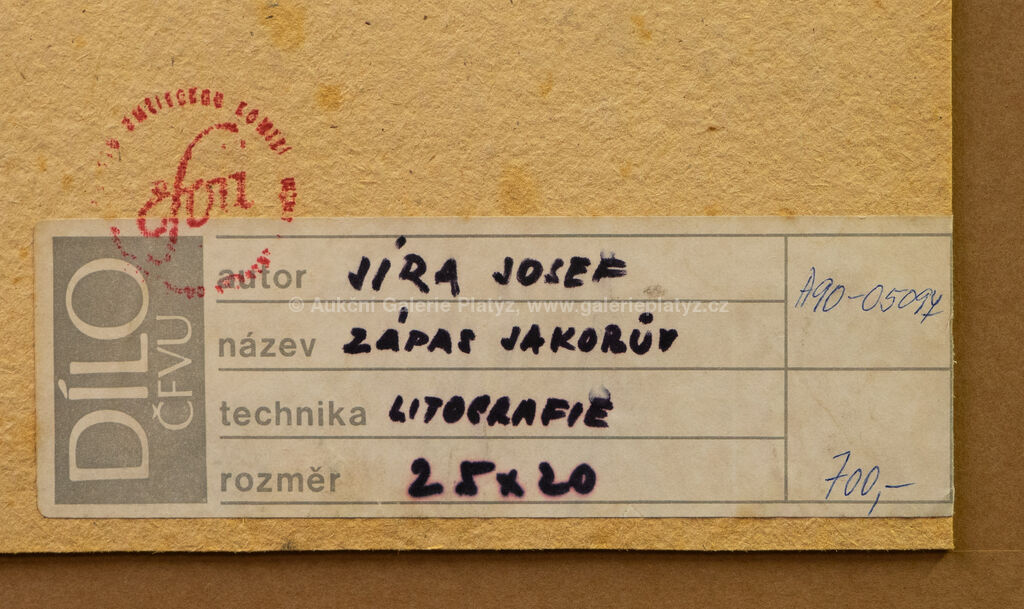 UMĚLECKOU KOMISÍ
čfvu
DÍLO
ČFVU
autor JÍRA JOSEF
© Aukční Galerie Platýz, www.galerieplatyz.cz
A90-05097
název ZÁPAS JAKOBŮV
technika LITOGRAFIE
rozměr 25x20
700,-